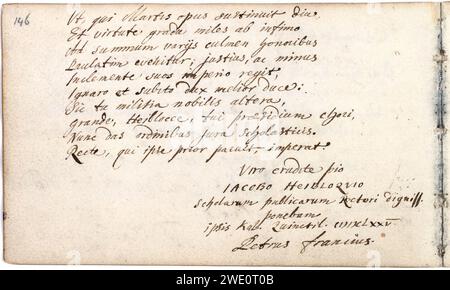 146
Ut, qui Martis opus sustinuit diu
Et virtute gradu miles ab infimo
Ad summum varijs culmen honoribus
Paulatim evehitur; justius, ac minus
Inclemente suos imperio regit,
Ignaro et subito dux melior duce:
Sic tu militia nobilis altera,
grande, Heilloce, tui praesidium chori,
Nunc das omnibus jura scholasticis.
Recte, qui ipse prior paruit, imperat.
Viro erudito pio
IACOBO HEILLOQUIO
scholarum publicarum rectori digniss.
ponebam
ipsis Kal. Quinctil.
Petrus francius.
alamy
Image ID: 2WE0T0B
www.alamy.com